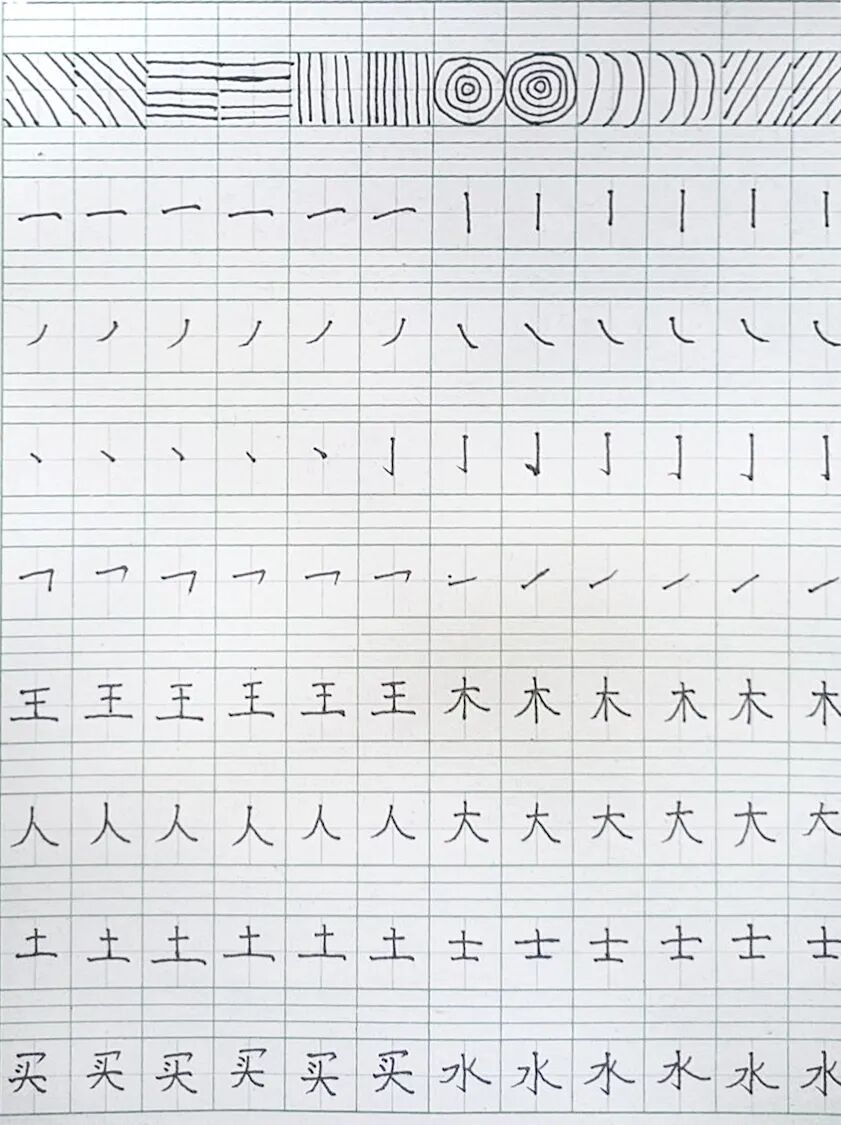 一一一一一一丨丨丨丨丨丨
丿丿丿丿丿丿㇏㇏㇏㇏㇏㇏
丶丶丶丶丶亅亅亅亅亅亅亅
乛乛乛乛乛乛㇀㇀㇀㇀㇀㇀
王王王王王王木木木木木木
人人人人人人大大大大大大
土土土土土土士士士士士士
买买买买买买水水水水水水